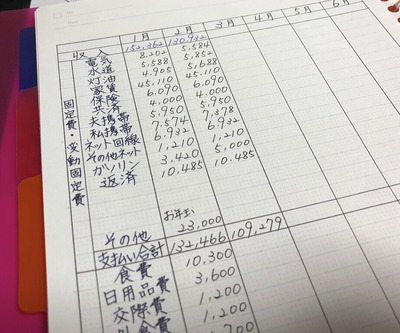 1月 2月 3月 4月 5月 6月
収入 152,362 130,932
固定費・変動固定費
電気 8,202 5,584
水道 5,588 5,852
灯油 4,905 5,688
家賃 45,110 45,110
保険 6,090 6,090
共済 4,000 4,000
夫携帯 5,950 5,950
私携帯 7,574 7,378
ネット回線 6,932 6,932
その他ネット 1,210 1,210
ガソリン 3,420 5,000
返済 10,485 10,485
お年玉
その他 23,000
支払い合計 132,466 109,279
食費 10,300
日用品費 3,600
交際費 1,200
外食費 1,200